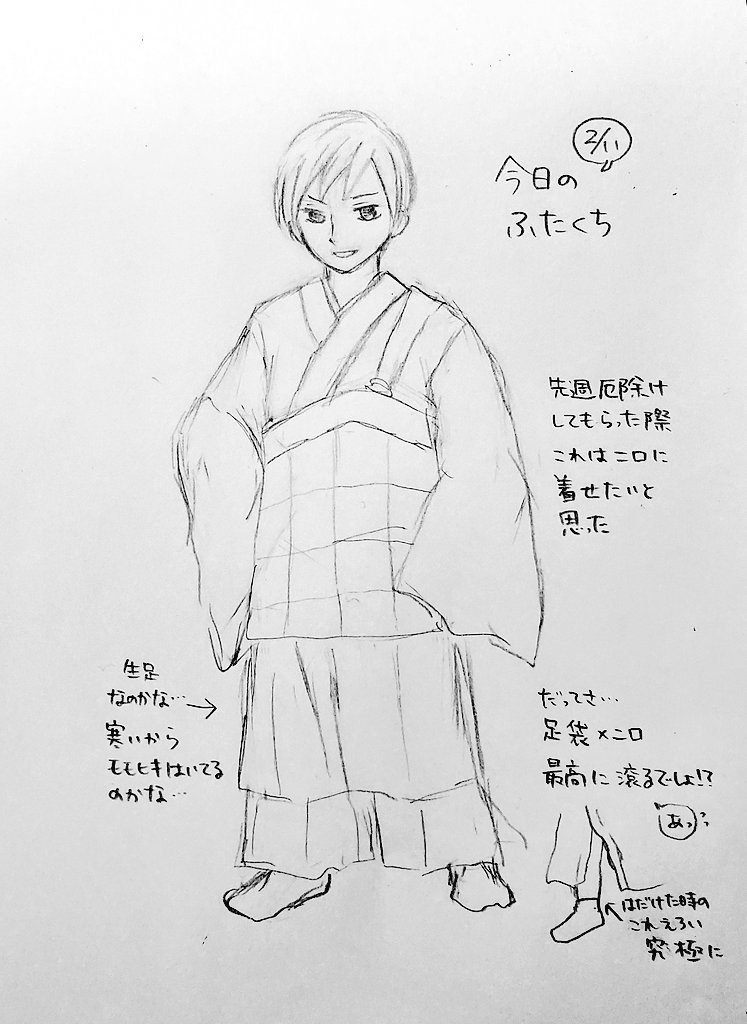 2/11
今日の
ふたくち
先週厄除け
してもらった際
これはニロに
着せたいと
思った
生足
なのかな…
寒いから
モモヒキはいてる
のかな…
だってさ…
足袋×ニロ
最高に滾るでしょ!?
あっ
はだけた時の
これえろい
究極に